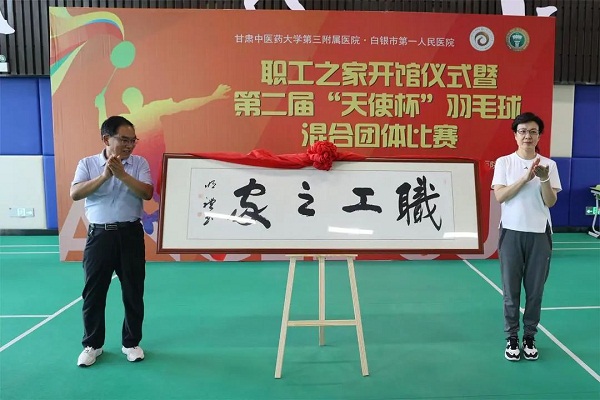 甘肃中医药大学第三附属医院·白银市第一人民医院
职工之家开馆仪式暨
第二届“天使杯”羽毛球
混合团体比赛
職工之家